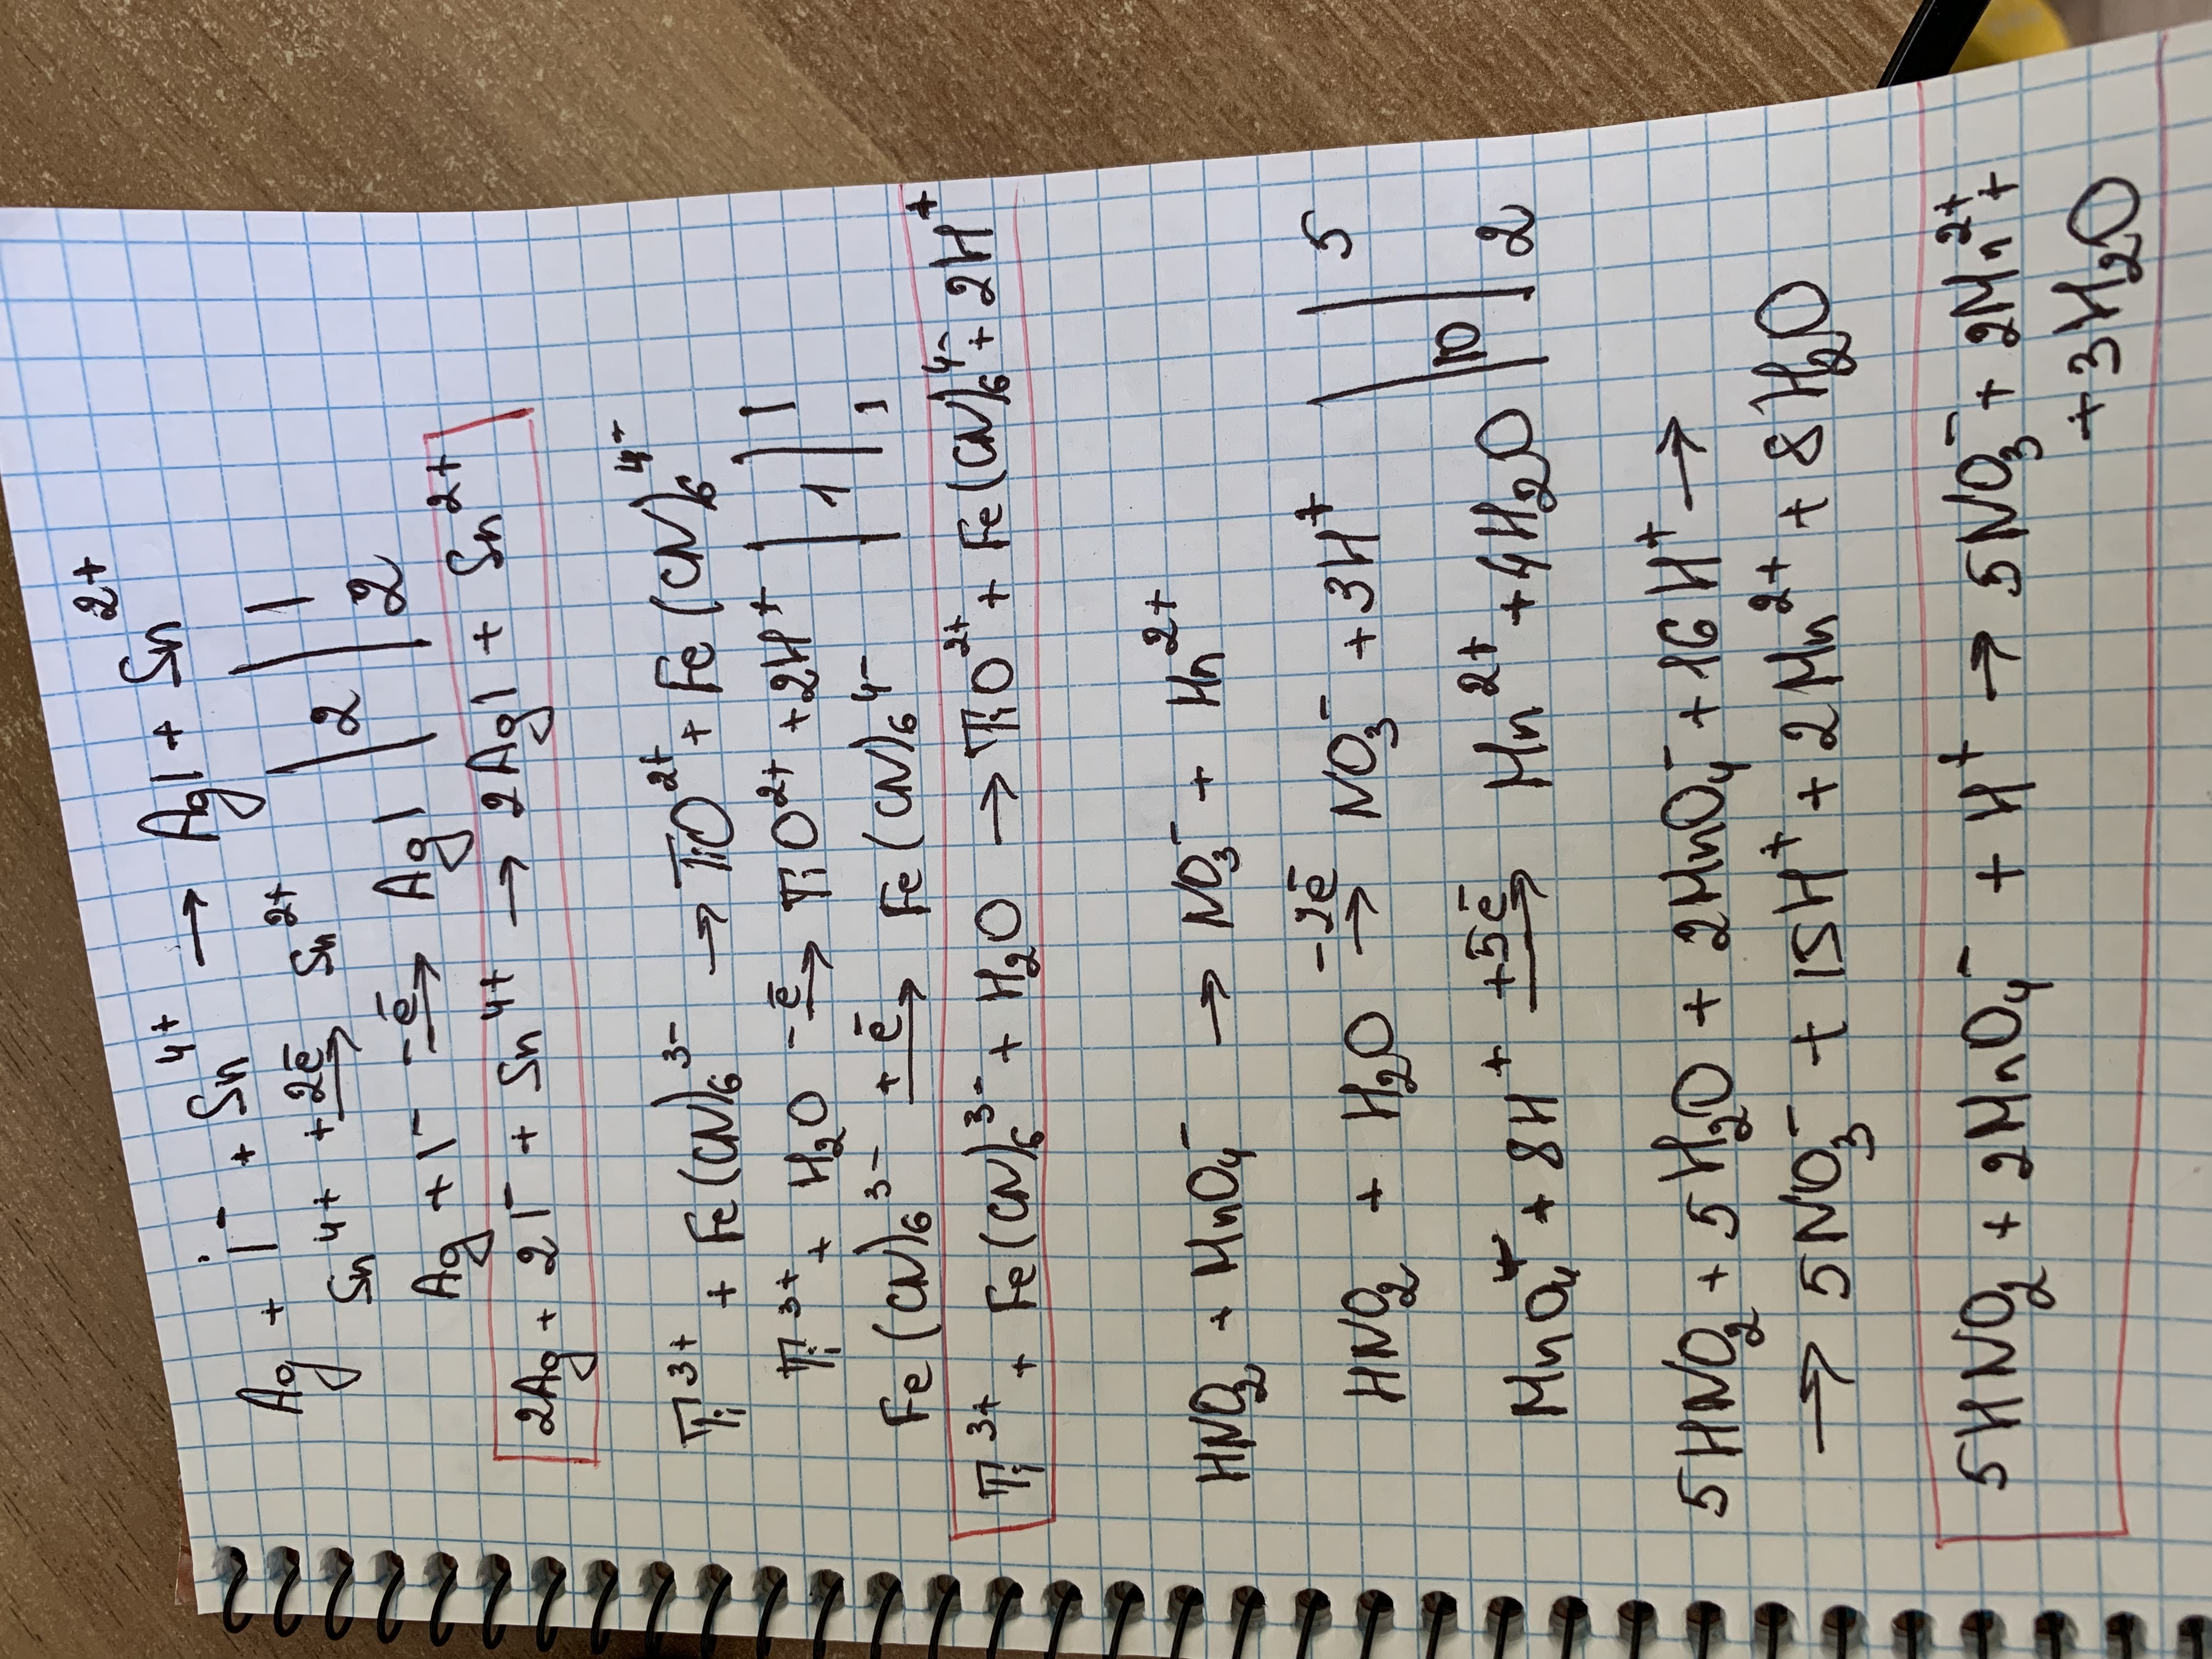 Ag + I⁻ + Sn⁴⁺ → AgI + Sn²⁺
Sn⁴⁺ +2ē→ Sn²⁺ | 2 | 1
Ag + I⁻ -ē→ AgI | 2
2Ag + 2I⁻ + Sn⁴⁺ → 2AgI + Sn²⁺
Ti³⁺ + Fe(CN)₆³⁻ → TiO²⁺ + Fe(CN)₆⁴⁺
Ti³⁺ + H₂O -ē→ TiO²⁺ + 2H⁺ | 1 | 1
Fe(CN)₆³⁻ +ē→ Fe(CN)₆⁴⁻ | 1
Ti³⁺ + Fe(CN)₆³⁻ + H₂O → TiO²⁺ + Fe(CN)₆⁴⁻ + 2H⁺
HNO₂ + MnO₄⁻ → NO₃⁻ + Mn²⁺
HNO₂ + H₂O -2ē→ NO₃⁻ + 3H⁺ | 10 | 5
MnO₄ + 8H⁺ +5ē→ Mn²⁺ + 4H₂O | 2
5HNO₂ + 5H₂O + 2MnO₄⁻ + 16H⁺ →
→ 5NO₃⁻ + 15H⁺ + 2Mn²⁺ + 8H₂O
5HNO₂ + 2MnO₄⁻ + H⁺ → 5NO₃⁻ + 2Mn²⁺ +
+ 3H₂O